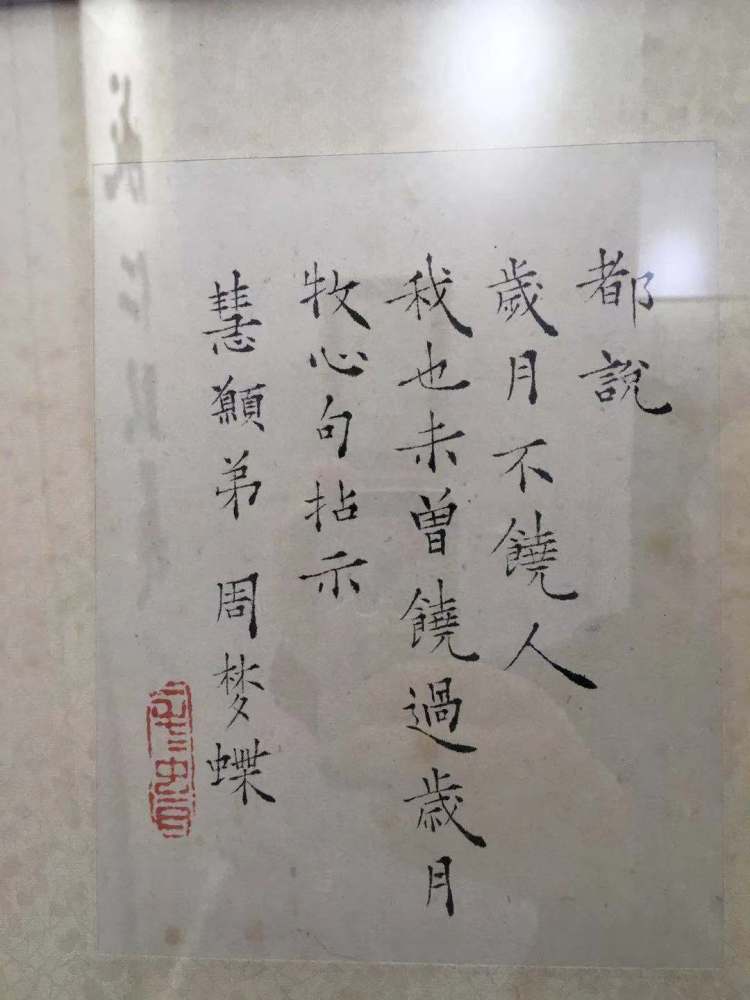 都說
歲月不饒人
我也未曾饒過歲月
牧心句拈示
慧顚弟 周梦蝶